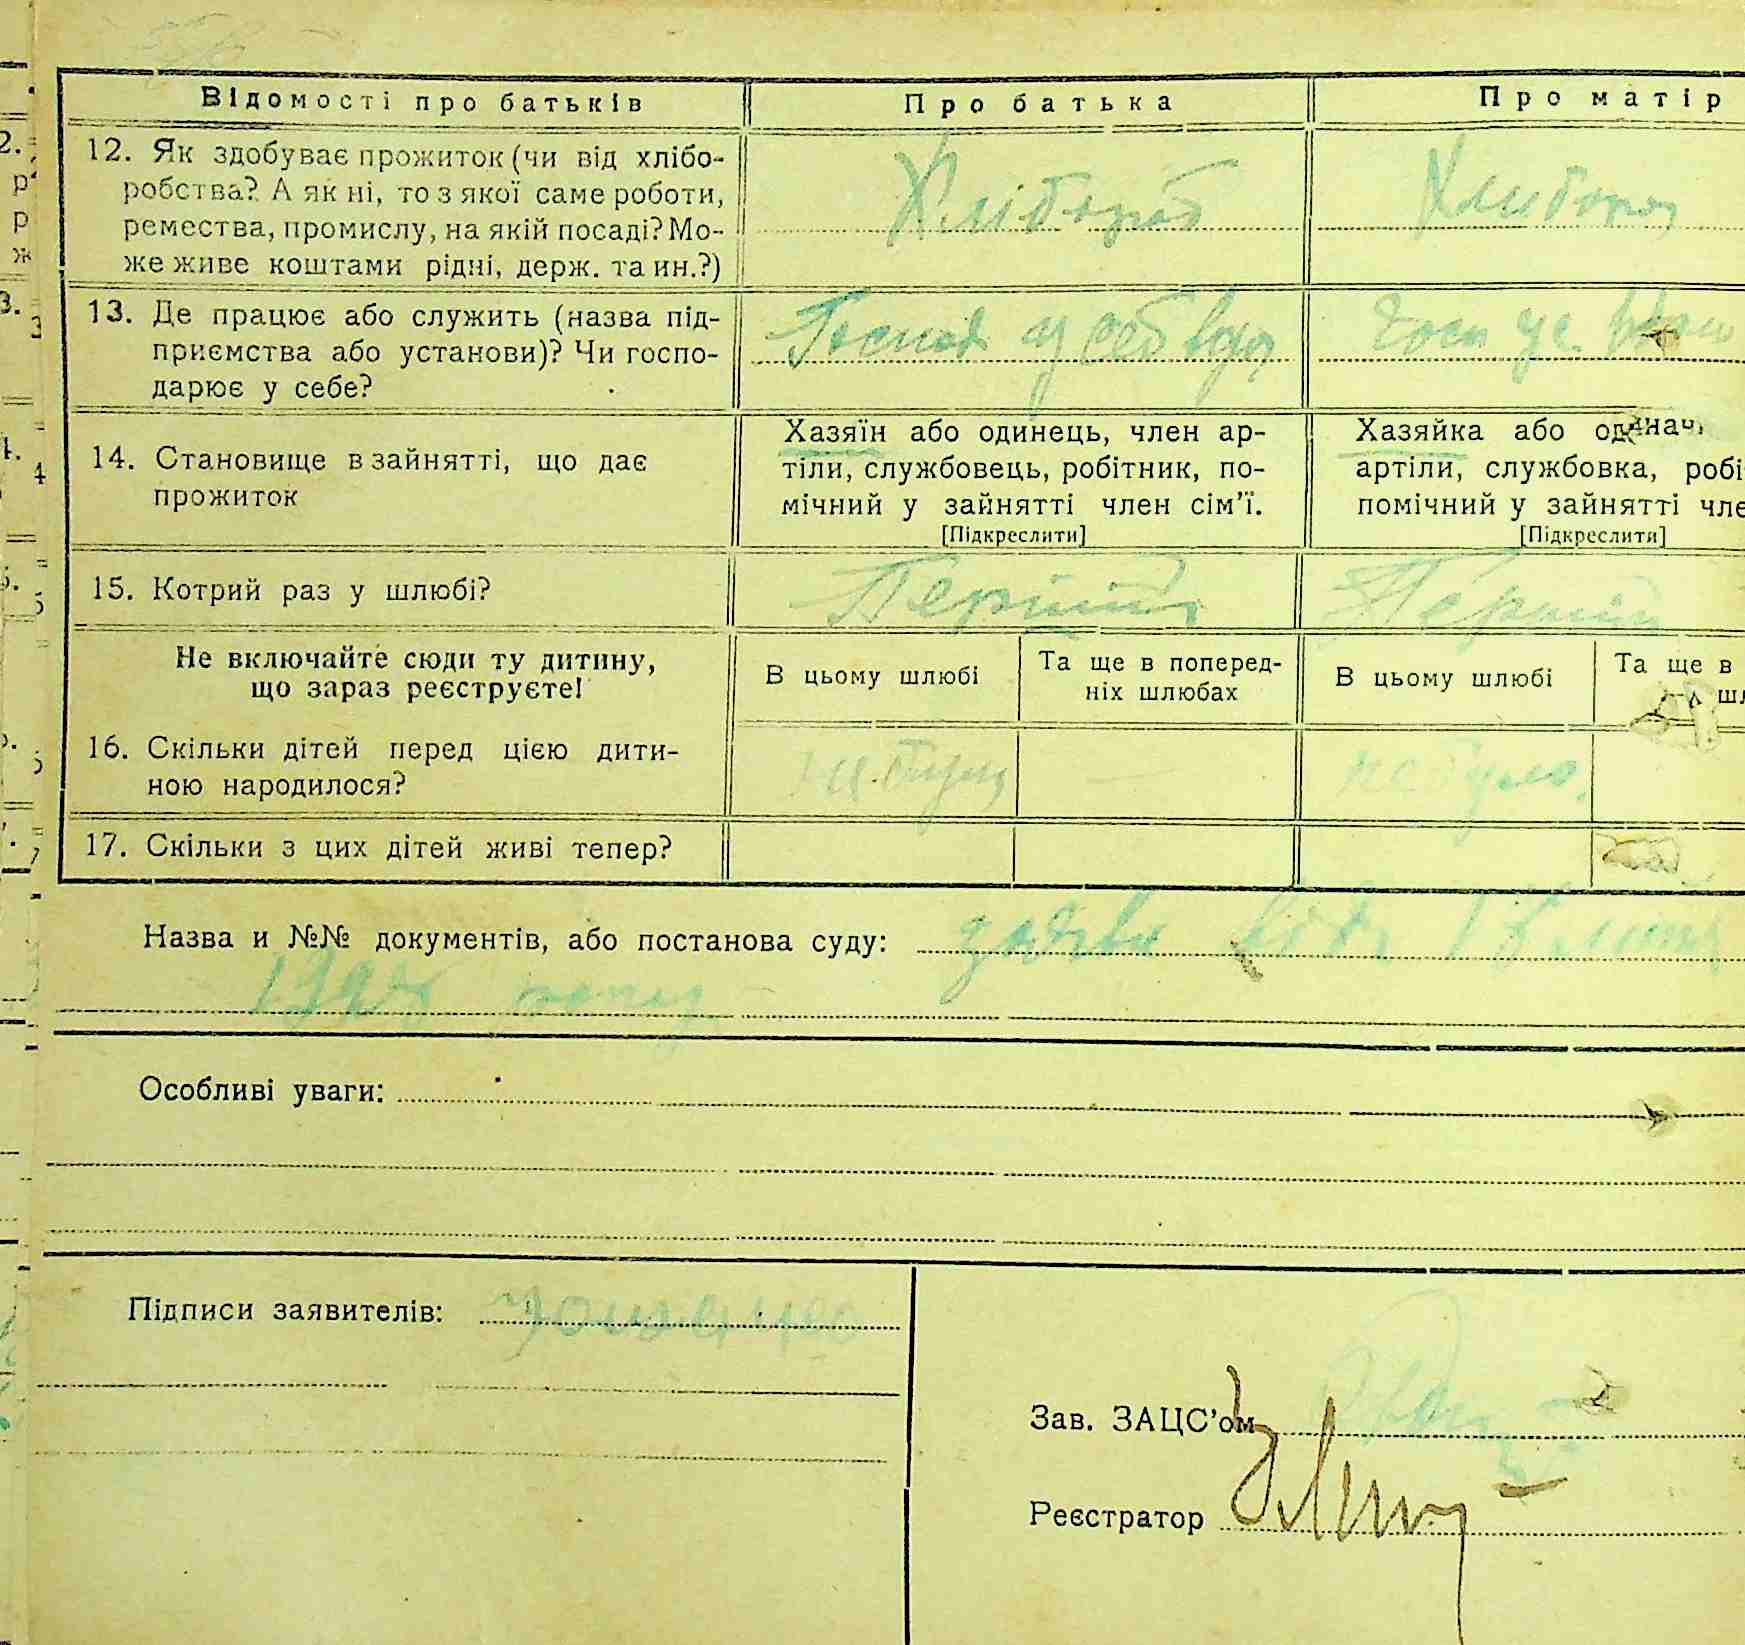 Відомості про батьків
Про батька
Про матір
12. Як здобуває прожиток (чи від хлібо-
робства? А як ні, то з якої саме роботи,
ремества, промислу, на якій посаді? Мо-
же живе коштами рідні, держ. та ин.?)
Хлібороб
13. Де працює або служить (назва під-
приємства або установи)? Чи госпо-
дарює у себе?
14. Становище в зайнятті, що дає
прожиток
Хазяїн або одинець, член ар-
тіли, службовець, робітник, по-
мічний у зайнятті член сім’ї.
[Підкреслити]
Хазяйка або
артіли, службовка, робі
помічний у зайнятті чле
[Підкреслити]
15. Котрий раз у шлюбі?
Перший
Перший
Не включайте сюди ту дитину,
що зараз реєструєте!
В цьому шлюбі
Та ще в поперед-
ніх шлюбах
В цьому шлюбі
Та ще в
шл
16. Скільки дітей перед цією дити-
ною народилося?
не було
17. Скільки з цих дітей живі тепер?
Назва и №№ документів, або постанова суду:
Особливі уваги:
Підписи заявителів:
Зав. ЗАЦС’ом
Реєстратор